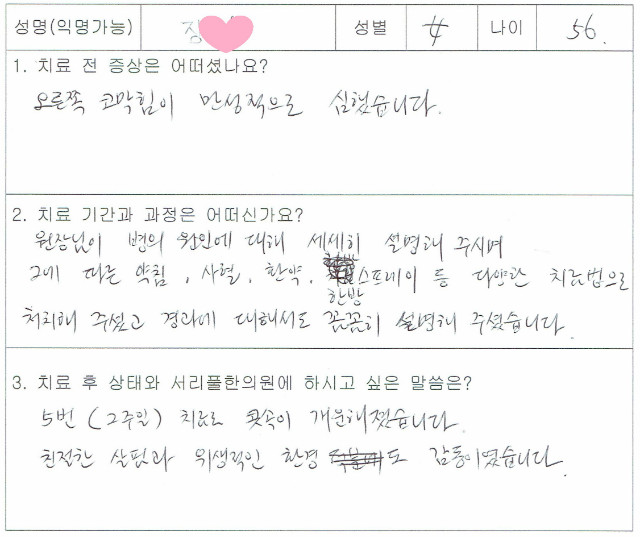 성명(익명가능) 장 성별 女 나이 56.
1. 치료 전 증상은 어떠셨나요?
오른쪽 코막힘이 만성적으로 심했습니다.
2. 치료 기간과 과정은 어떠신가요?
원장님이 병의 원인에 대해 세세히 설명해 주시며
그에 따른 약침, 사혈, 한약, 스프레이 등 다양한 치료법으로
한방
처치해 주셨고 경과에 대해서도 꼼꼼히 설명해 주셨습니다.
3. 치료 후 상태와 서리풀한의원에 하시고 싶은 말씀은?
5번 (2주일) 치료로 콧속이 개운해졌습니다.
친절한 살핌과 위생적인 환경 도 감동이었습니다.